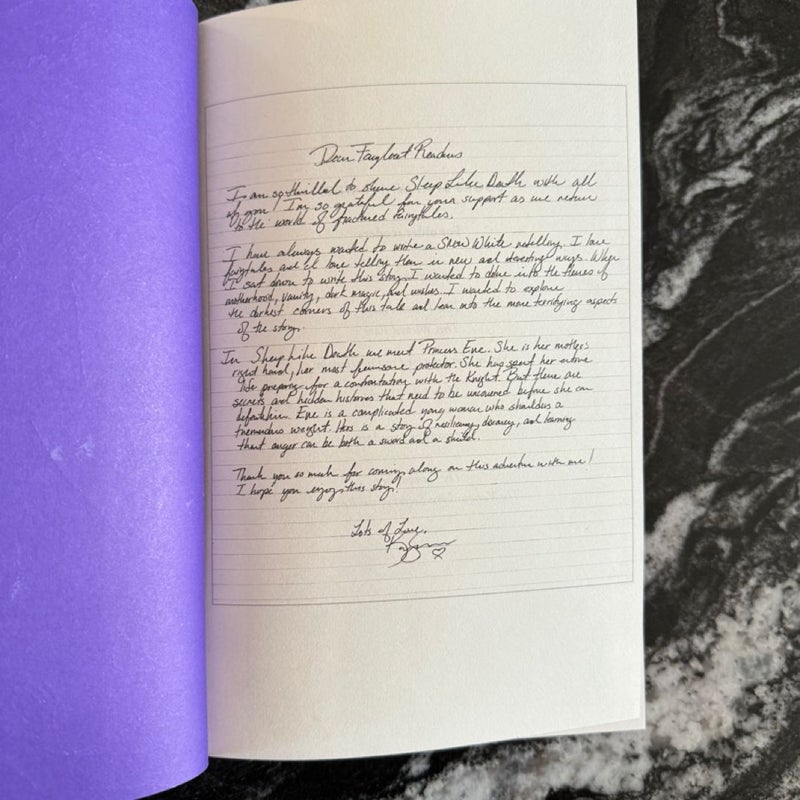 Dear Fairyloot Readers
I am so thrilled to share Sleep Like Death with all
of you! I'm so grateful for your support as we return
to the world of fractured fairytales.
I have always wanted to write a Snow White retelling. I love
fairytales and I love telling them in new and interesting ways. When
I sat down to write this story I wanted to delve into the themes of
motherhood, vanity, dark magic, and wishes. I wanted to explore
the darkest corners of this tale and lean into the more terrifying aspects
of the story.
In Sleep Like Death we meet Princess Eve. She is her mother's
right hand, her most fearsome protector. She has spent her entire
life preparing for a confrontation with the Knight. But there are
secrets and hidden histories that need to be uncovered before she can
defeat him. Eve is a complicated young woman who shoulders a
tremendous weight. This is a story of resiliency, and learning
that anger can be both a sword and a shield.
Thank you so much for coming along on this adventure with me!
I hope you enjoy this story!
Lots of Love,